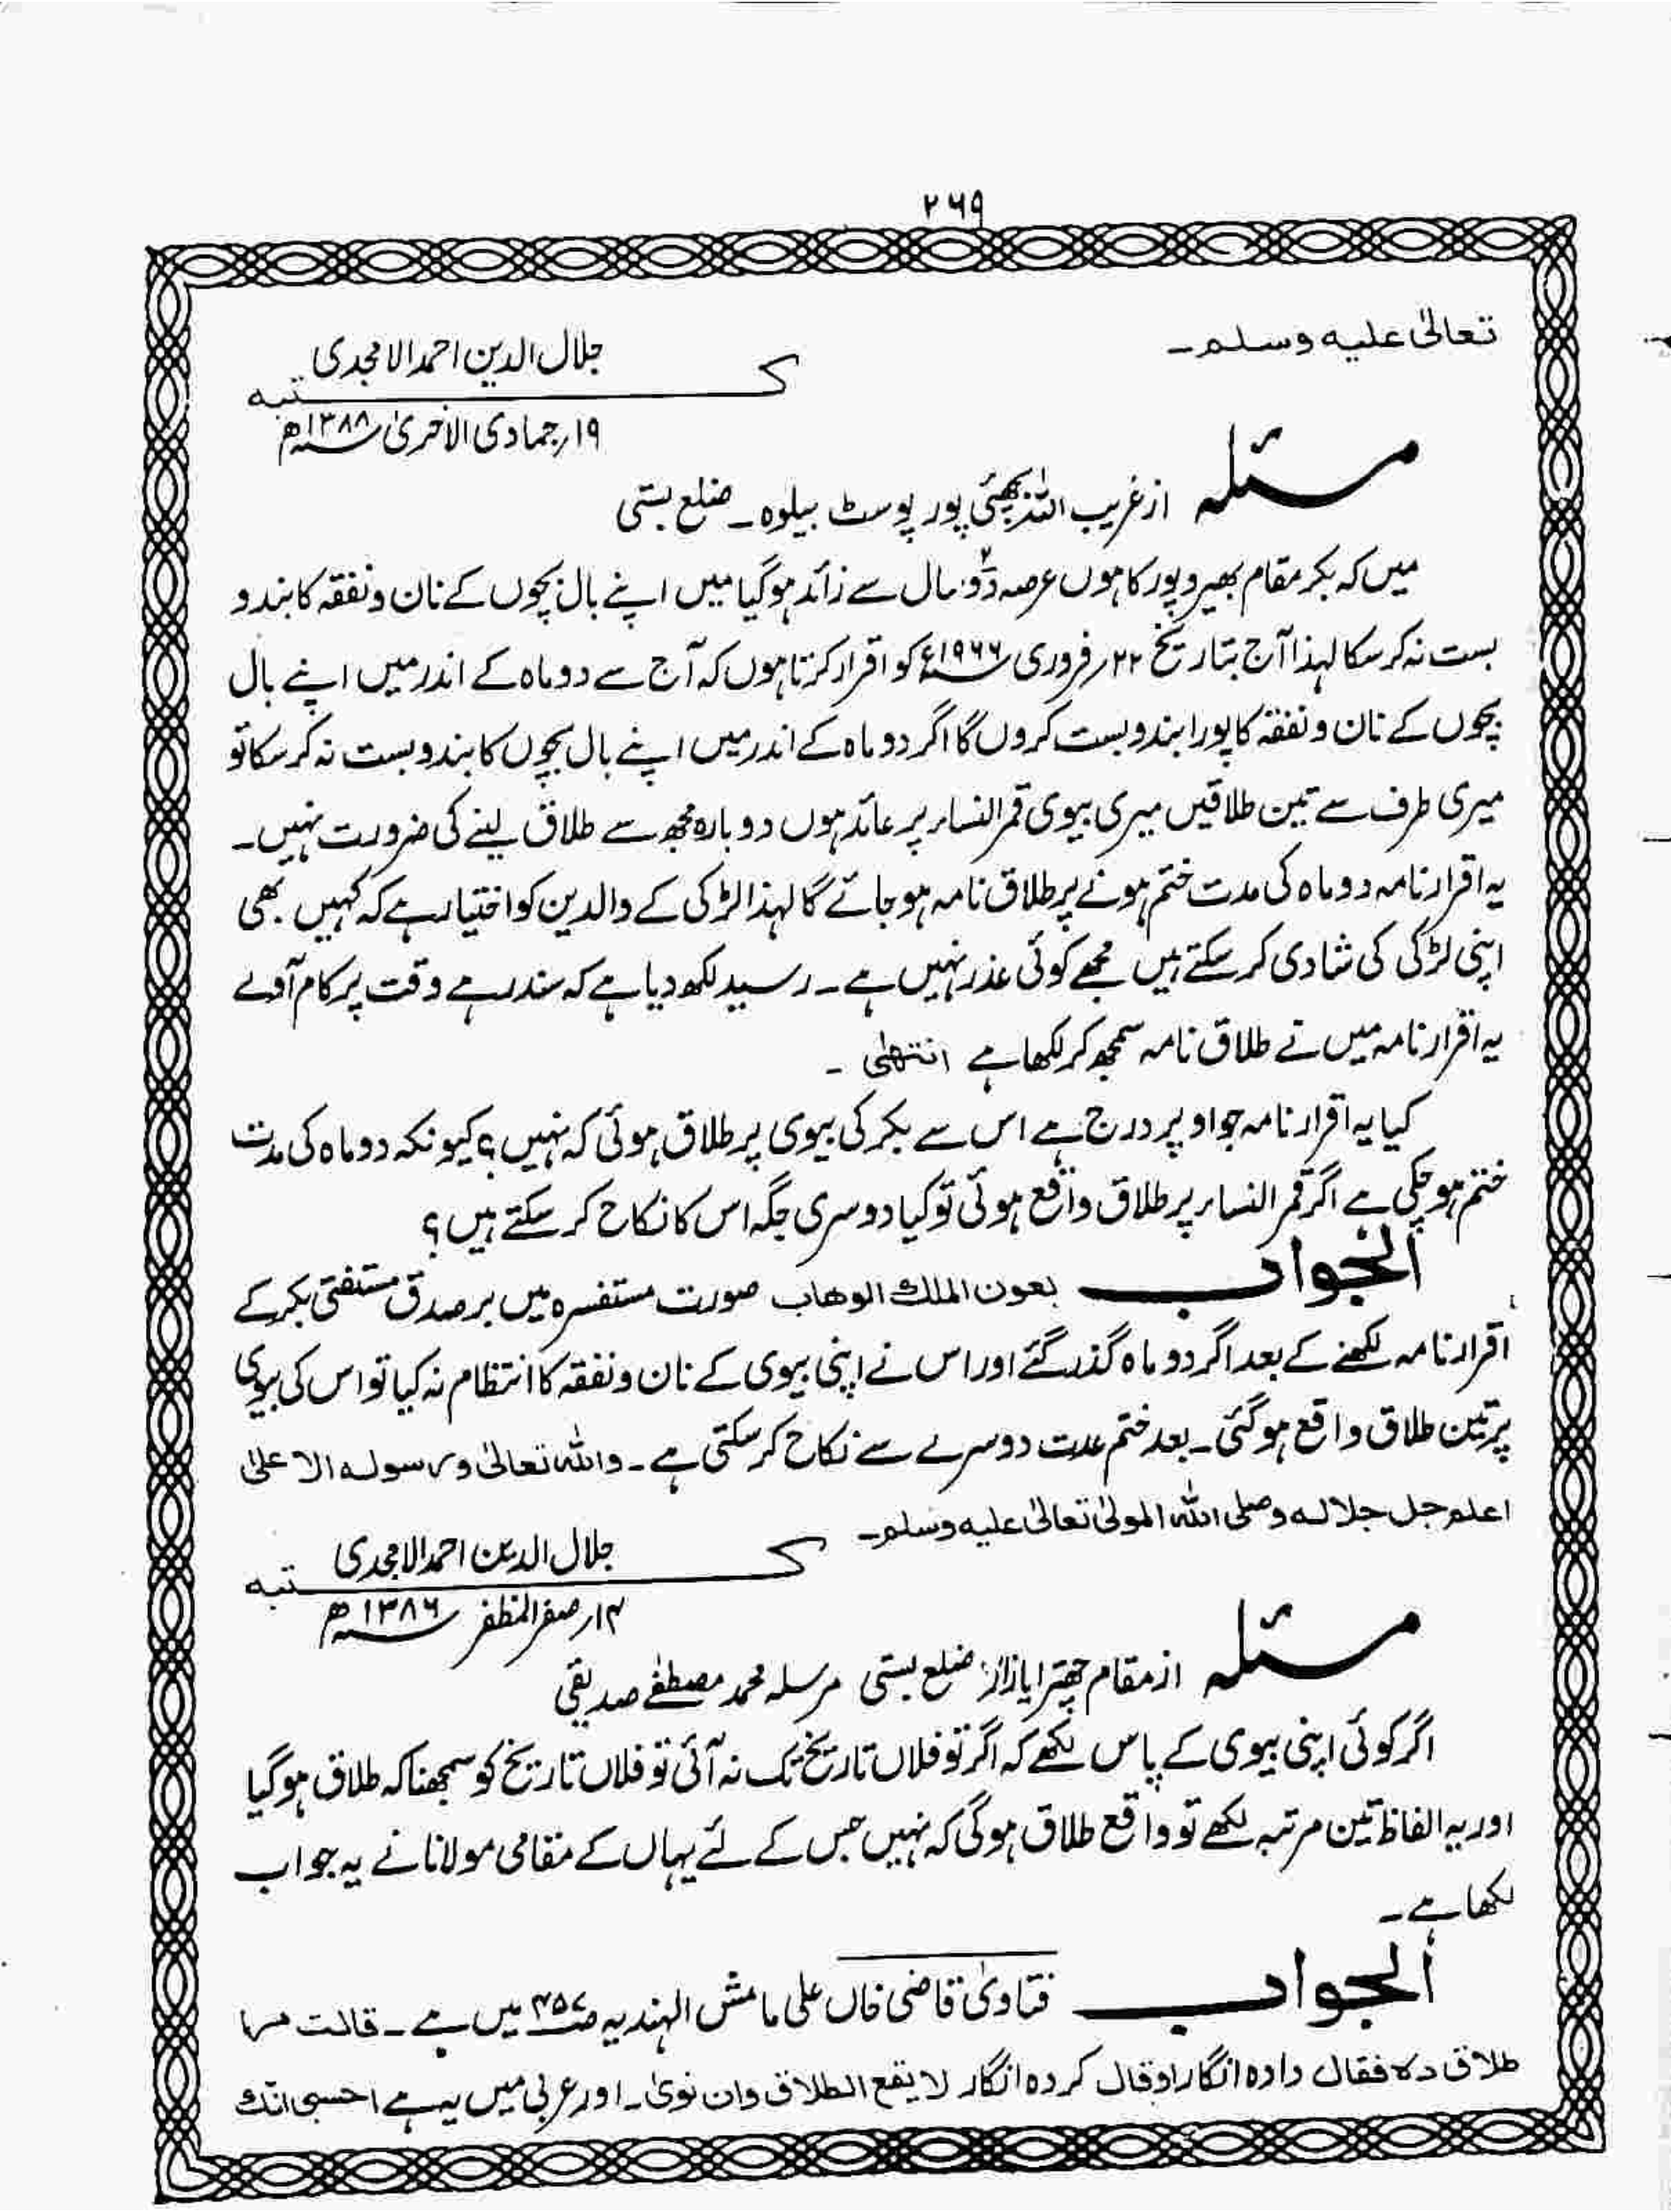 ۲۶۹
تعالیٰ علیہ وسلم۔
جلال الدین احمد الامجدی
کتبہ
۱۹؍ جمادی الاخریٰ ۱۳۸۸ھ
مسئلہ از غریب اللہ پور پوسٹ بیلوہ۔ ضلع بستی
میں کہ بکر مقام بھیروپور کا ہوں عرصہ دو۲ سال سے زائد ہوگیا میں اپنے بال بچوں کے نان و نفقہ کا بندو
بست نہ کرسکا لہذا آج بتاریخ ۲۲؍ فروری ۱۹۶۶ء کو اقرار کرتا ہوں کہ آج سے دو ماہ کے اندر میں اپنے بال
بچوں کے نان و نفقہ کا پورا بندوبست کروں گا اگر دو ماہ کے اندر میں اپنے بال بچوں کا بندوبست نہ کرسکا تو
میری طرف سے تین طلاقیں میری بیوی قمر النساء پر عائد ہوں دوبارہ مجھ سے طلاق لینے کی ضرورت نہیں۔
یہ اقرار نامہ دو ماہ کی مدت ختم ہونے پر طلاق نامہ ہوجائے گا لہذا لڑکی کے والدین کو اختیار ہے کہ کہیں بھی
اپنی لڑکی کی شادی کرسکتے ہیں مجھے کوئی عذر نہیں ہے۔ رسید لکھ دیا ہے کہ سند رہے وقت پر کام آوے
یہ اقرار نامہ میں نے طلاق نامہ سمجھ کر لکھا ہے انتھیٰ ۔
کیا یہ اقرار نامہ جو اوپر درج ہے اس سے بکر کی بیوی پر طلاق ہوئی کہ نہیں؟ کیونکہ دو ماہ کی مدت
ختم ہوچکی ہے اگر قمر النساء پر طلاق واقع ہوئی تو کیا دوسری جگہ اس کا نکاح کرسکتے ہیں؟
الجواب بعون الملک الوھاب صورت مستفسرہ میں بر صدق مستفتی بکر کے
اقرار نامہ لکھنے کے بعد اگر دو ماہ گذر گئے اور اس نے اپنی بیوی کے نان و نفقہ کا انتظام نہ کیا تو اس کی بیوی
پر تین طلاق واقع ہوگئی۔ بعد ختم عدت دوسرے سے نکاح کرسکتی ہے۔ واللہ تعالیٰ ورسولہ الاعلیٰ
اعلم جل جلالہ وصلی اللہ المولیٰ تعالیٰ علیہ وسلم۔
جلال الدین احمد الامجدی
کتبہ
۱۳؍ صفر المظفر ۱۳۸۶ھ
مسئلہ از مقام چھترا بازار ضلع بستی مرسلہ محمد مصطفےٰ صدیقی
اگر کوئی اپنی بیوی کے پاس لکھے کہ اگر تو فلاں تاریخ تک نہ آئی تو فلاں تاریخ کو سمجھنا کہ طلاق ہوگیا
اور یہ الفاظ تین مرتبہ لکھے تو واقع طلاق ہوگی کہ نہیں جس کے لئے یہاں کے مقامی مولانا نے یہ جواب
لکھا ہے۔
الجواب فتاویٰ قاضی خاں علی ہامش الہندیہ ص۴۵۷ میں ہے۔ قالت مرا
طلاق دہ فقال دادہ انگار او قال کردہ انگار لا یقع الطلاق وان نویٰ۔ اور عربی میں یہ ہے احسبی انک